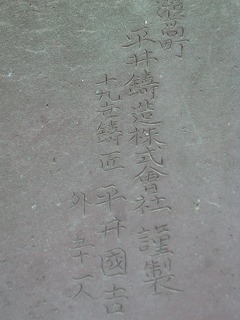 平井鋳造株式會社 謹製
十九世鋳匠 平井國吉
外五十一人